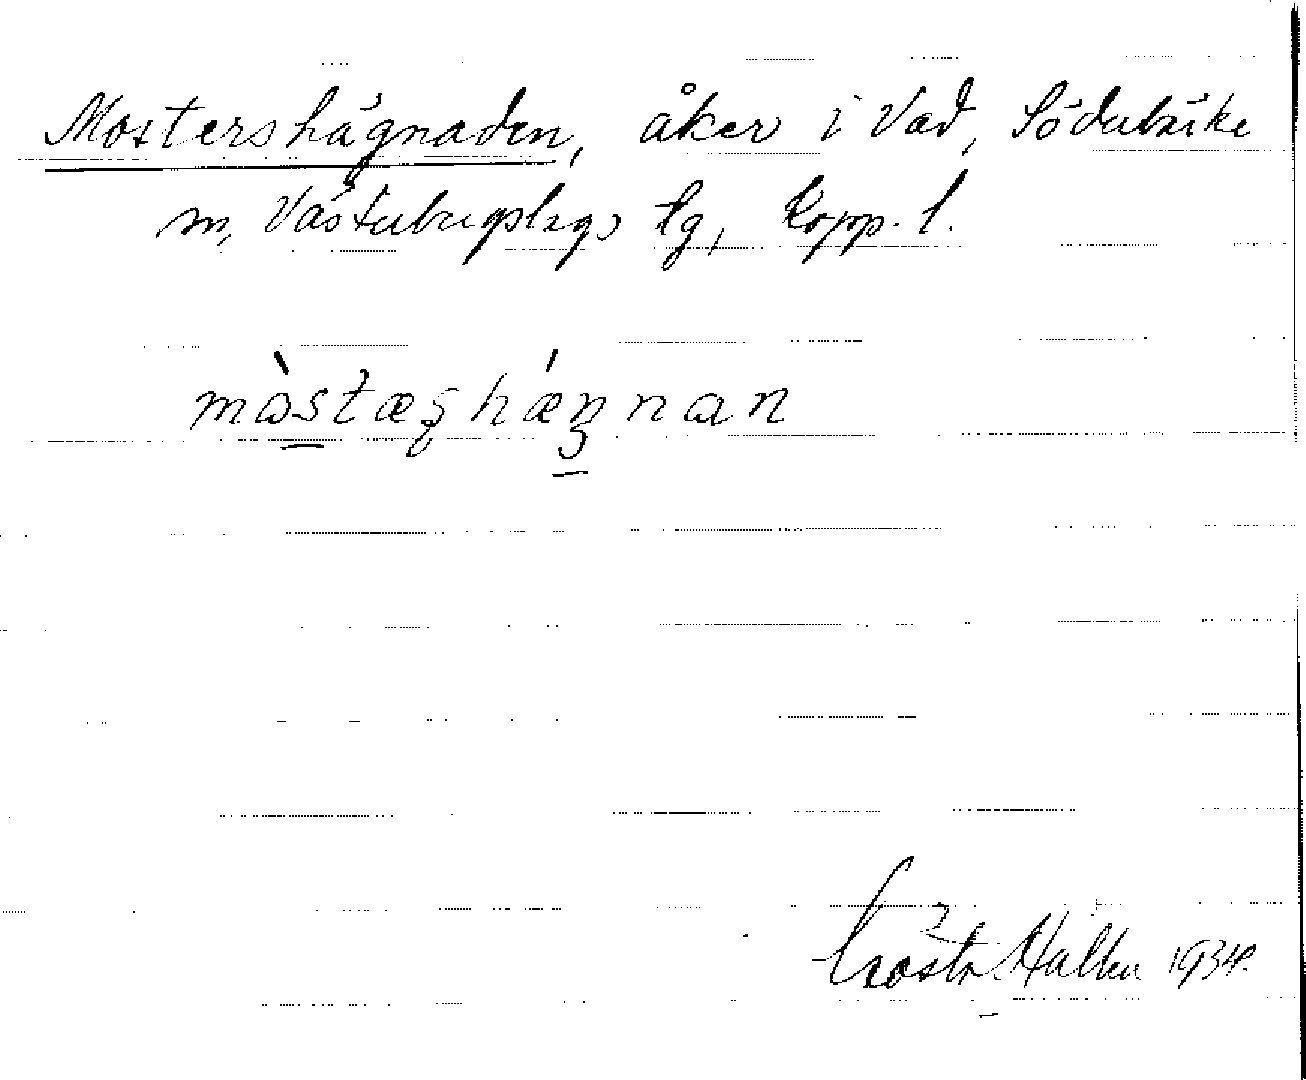 Mostershägnaden, åker i Vad, Söderbärke
m, Västerbergslags tg, Kopp. l.
mòstæʂhæ´ŋnan
Gösta Hallen 1934.